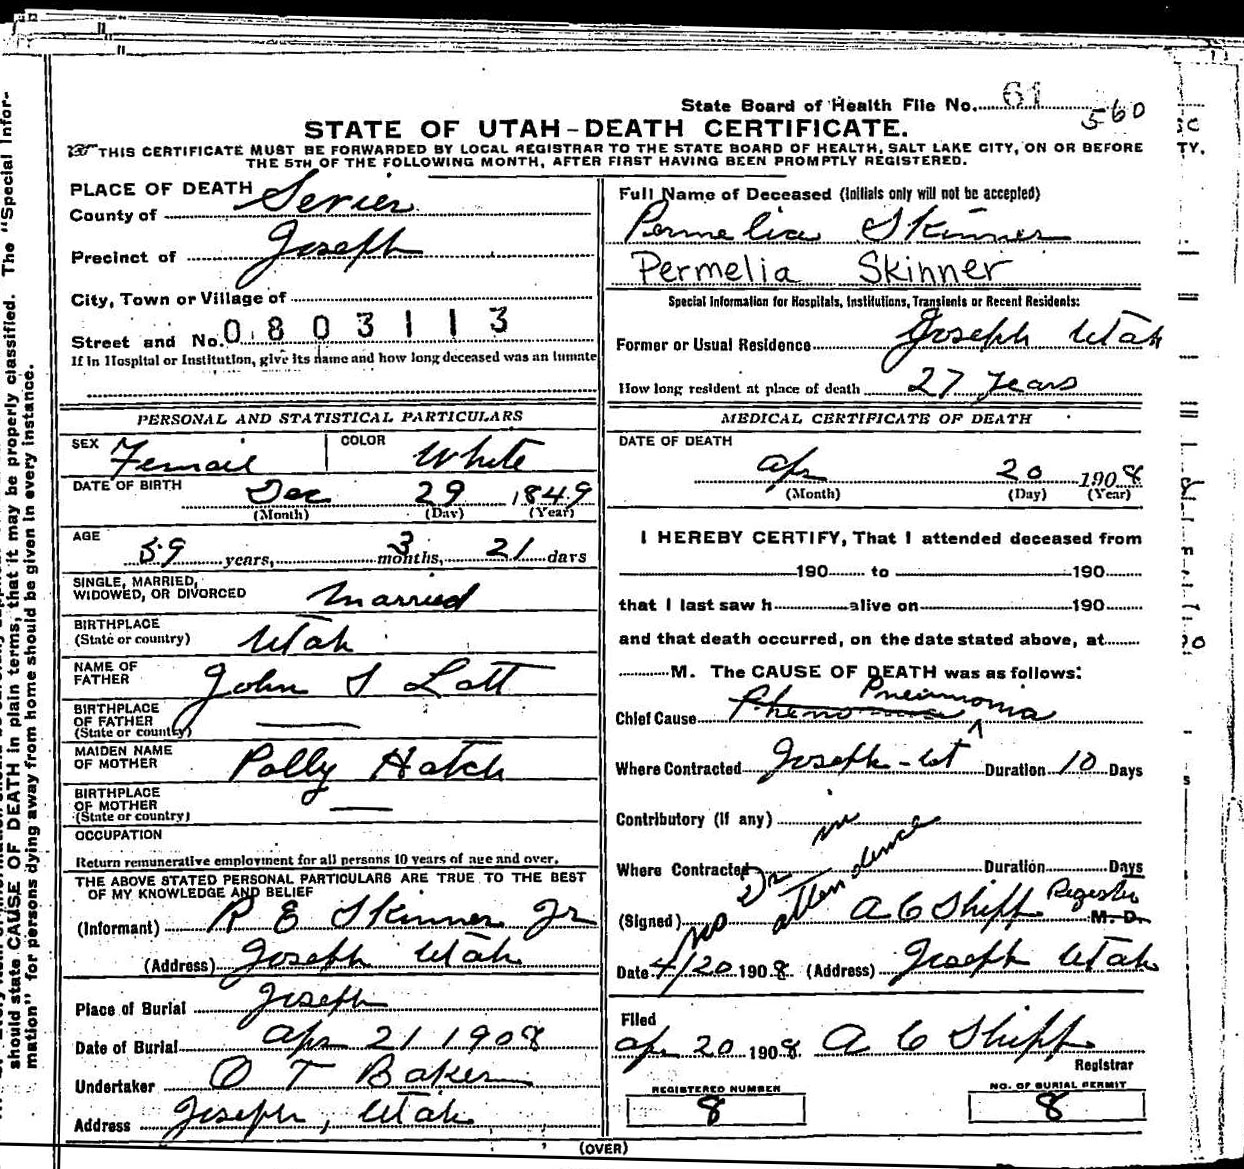 State Board of Health File No. 61
560
STATE OF UTAH-DEATH CERTIFICATE.
THIS CERTIFICATE MUST BE FORWARDED BY LOCAL REGISTRAR TO THE STATE BOARD OF HEALTH, SALT LAKE CITY, ON OR BEFORE
THE 5TH OF THE FOLLOWING MONTH, AFTER FIRST HAVING BEEN PROMPTLY REGISTERED.
PLACE OF DEATH
County of Sevier
Precinct of Joseph
City, Town or Village of
Street and No. 0803113
If in Hospital or Institution, give its name and how long deceased was an inmate
PERSONAL AND STATISTICAL PARTICULARS
SEX Femail COLOR White
DATE OF BIRTH Dec 29 1849
(Month) (Day) (Year)
AGE 59 years, 3 months, 21 days
SINGLE, MARRIED,
WIDOWED, OR DIVORCED Married
BIRTHPLACE
(State or country) Utah
NAME OF
FATHER John S Lott
BIRTHPLACE
OF FATHER
(State or country)
MAIDEN NAME
OF MOTHER Polly Hatch
BIRTHPLACE
OF MOTHER
(State or country)
OCCUPATION
Return remunerative employment for all persons 10 years of age and over.
THE ABOVE STATED PERSONAL PARTICULARS ARE TRUE TO THE BEST
OF MY KNOWLEDGE AND BELIEF
(Informant) R E Skinner Jr
(Address) Joseph Utah
Place of Burial Joseph
Date of Burial Apr 21 1908
Undertaker O T Baker
Address Joseph, Utah
Full Name of Deceased (Initials only will not be accepted)
Permelia Skinner
Permelia Skinner
Special Information for Hospitals, Institutions, Transients or Recent Residents:
Former or Usual Residence Joseph Utah
How long resident at place of death 27 Years
MEDICAL CERTIFICATE OF DEATH
DATE OF DEATH
Apr 20 1908
(Month) (Day) (Year)
I HEREBY CERTIFY, That I attended deceased from
190 to 190
that I last saw h alive on 190
and that death occurred, on the date stated above, at
M. The CAUSE OF DEATH was as follows:
Chief Cause Pneumonia
Where Contracted Joseph-Ut Duration 10 Days
Contributory (if any)
Where Contracted Duration Days
no Dr in attendence
(Signed) A C Shipp Register M. D.
Date 4/20 1908 (Address) Joseph Utah
Filed
Apr 20 1908 A C Shipp
Registrar
REGISTERED NUMBER
8
NO. OF BURIAL PERMIT
8
(OVER)
should state CAUSE OF DEATH in plain terms, that it may be properly classified. The "Special Infor-
mation" for persons dying away from home should be given in every instance.